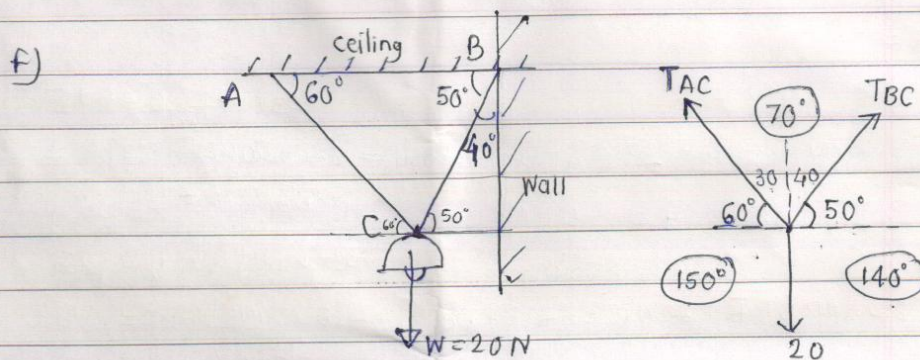 f)
ceiling
A
B
60°
50°
40°
Wall
C 60°
50°
W = 20 N
TAC
TBC
70°
30
40
60°
50°
150°
140°
20